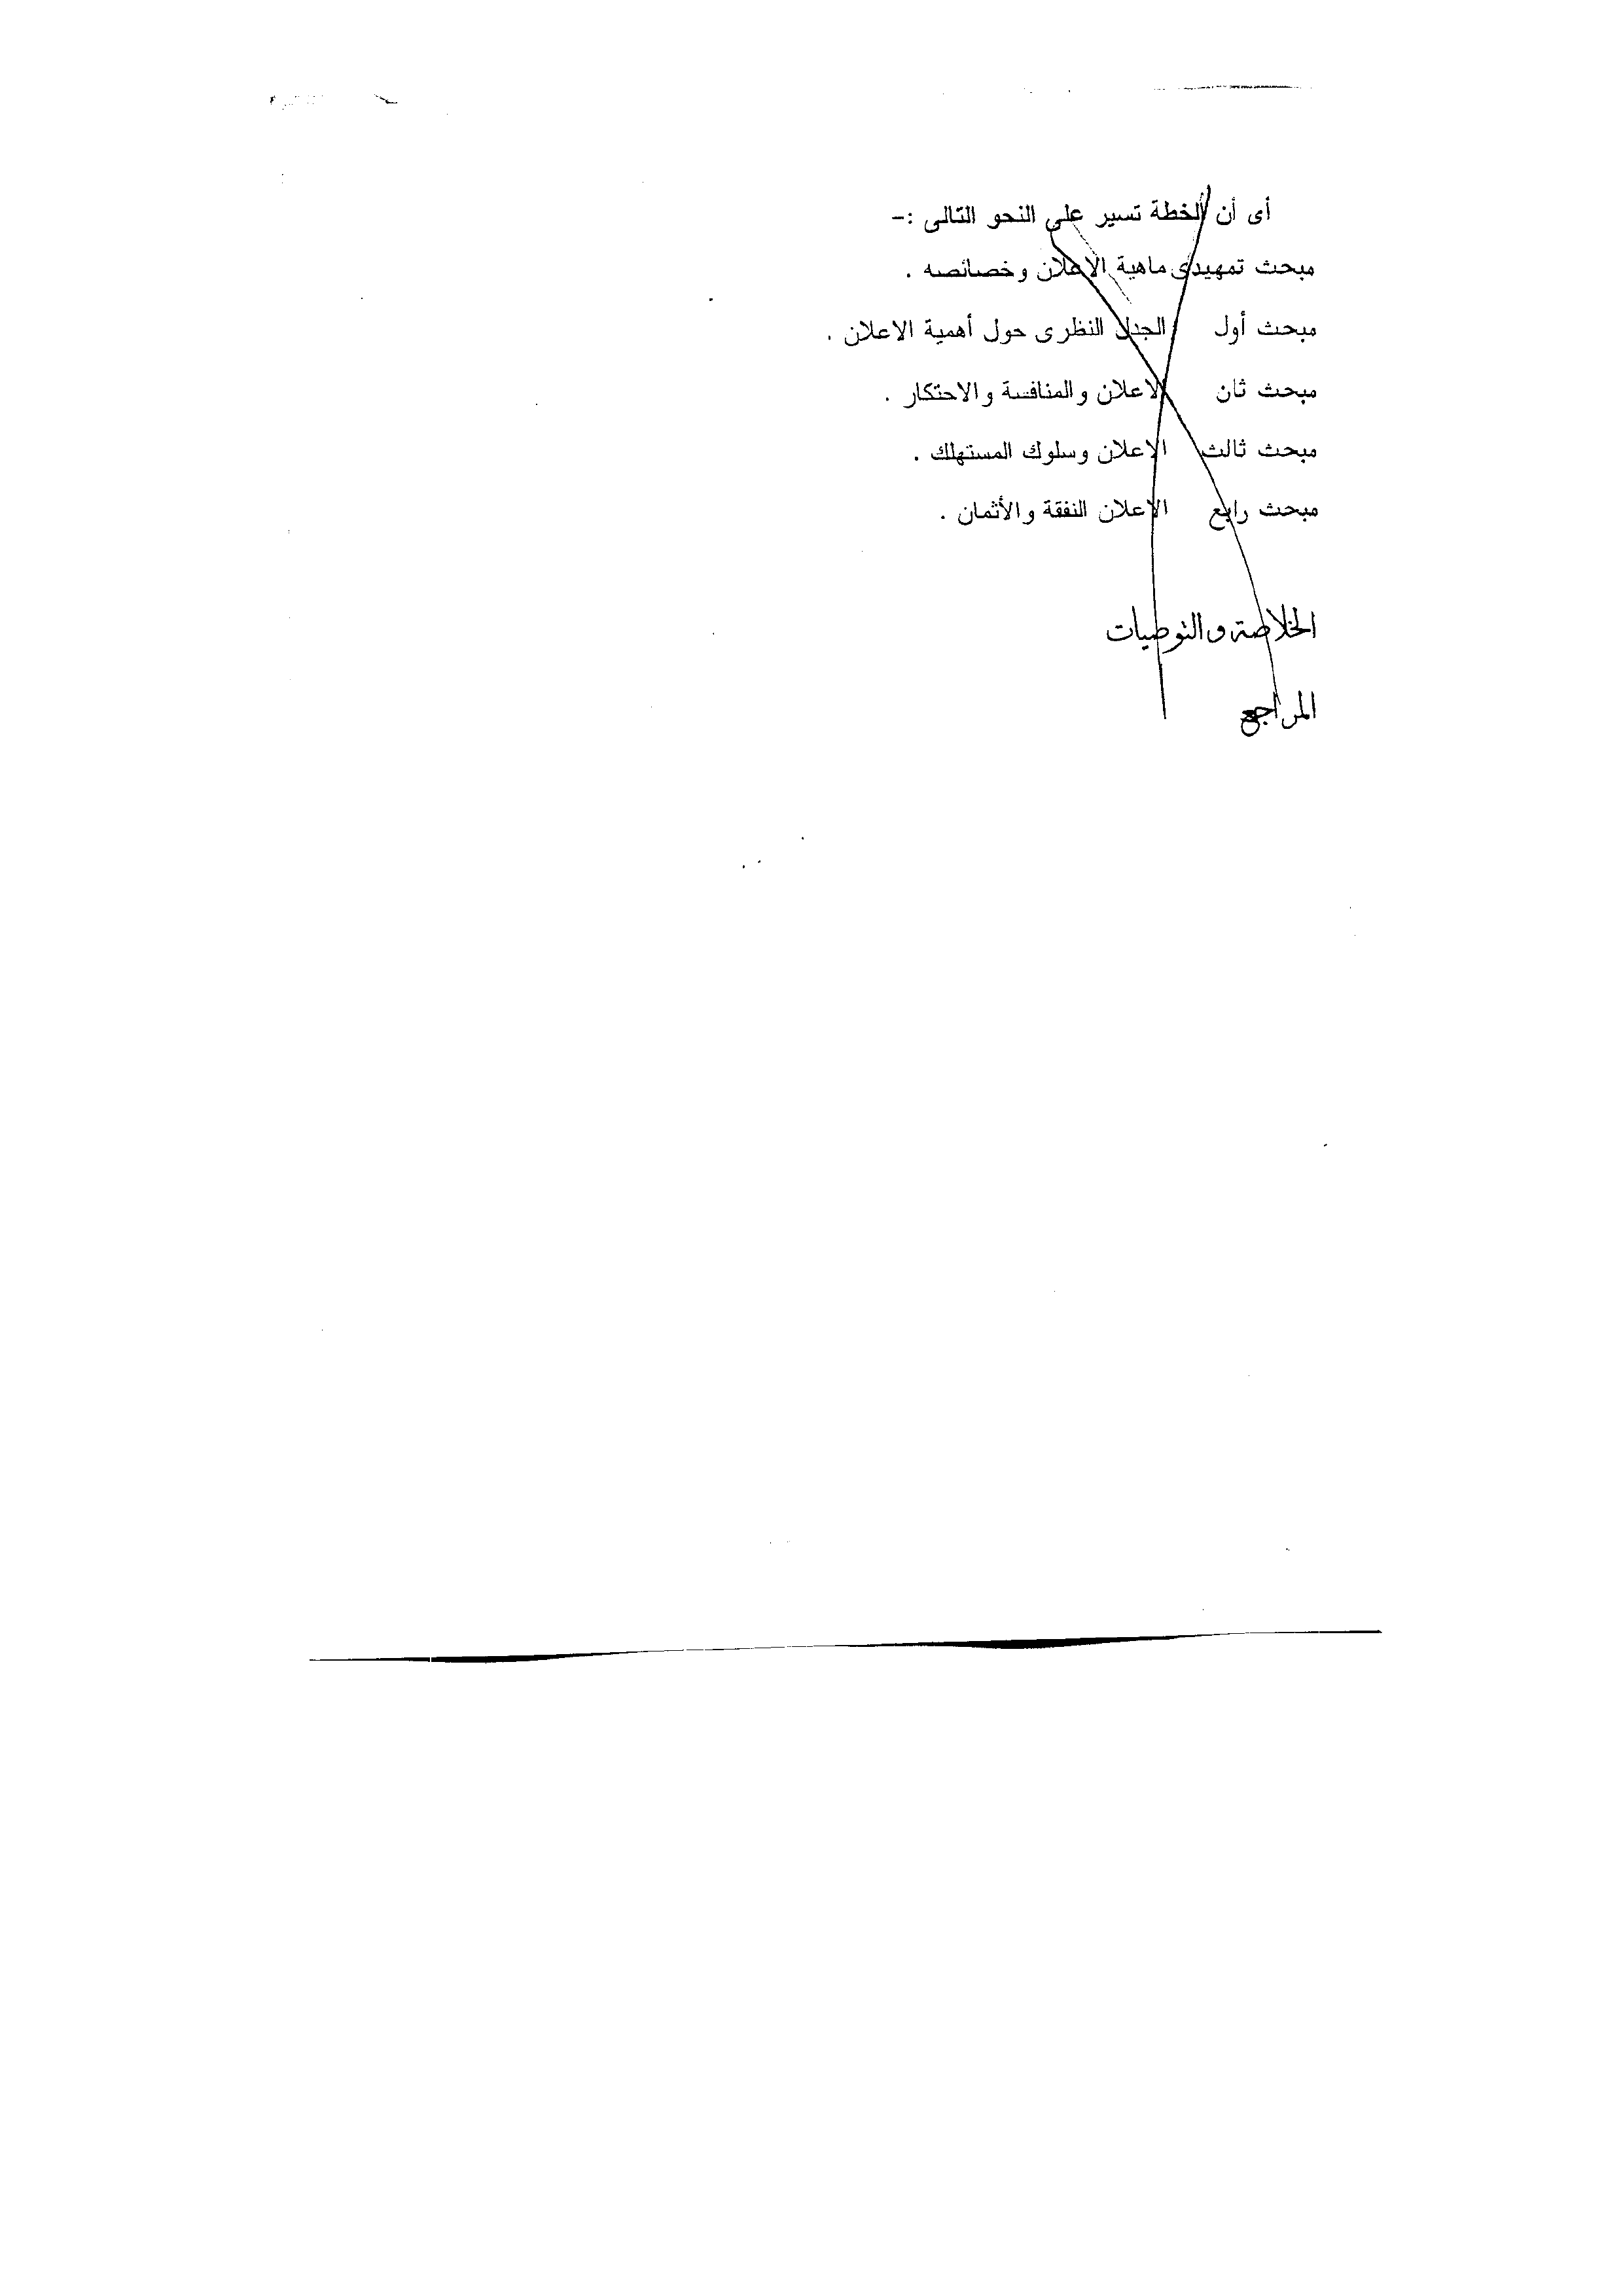 أى أن الخطة تسير على النحو التالى :-
مبحث تمهيدى ماهية الاعلان وخصائصه .
مبحث أول الجدل النظرى حول أهمية الاعلان .
مبحث ثان الاعلان والمنافسة والاحتكار .
مبحث ثالث الاعلان وسلوك المستهلك .
مبحث رابع الاعلان النفقة والأثمان .
الخلاصة والتوصيات
المراجع